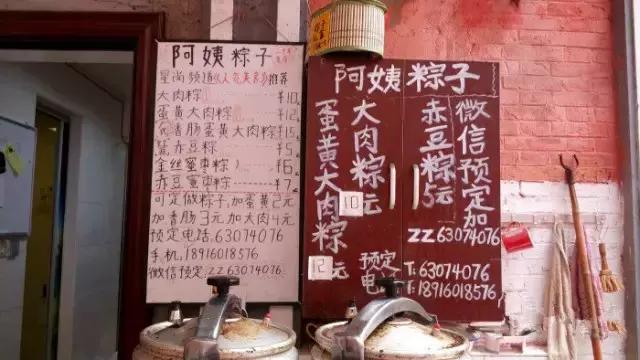 阿姨粽子
星尚频道《人气美食》推荐
大肉粽 ¥10
蛋黄大肉粽 ¥12
香肠蛋黄大肉粽 ¥15
赤豆粽 ¥5
金丝蜜枣粽 ¥6
赤豆蜜枣粽 ¥7
可定做粽子,加蛋黄2元
加香肠3元 加大肉4元
预定电话,63074076
手机,18916018576
微信预定,ZZ63074076
阿姨粽子
大肉粽10元
蛋黄大肉粽12元
赤豆粽5元
微信预定加
ZZ63074076
预定电话
T:63074076
T:18916018576